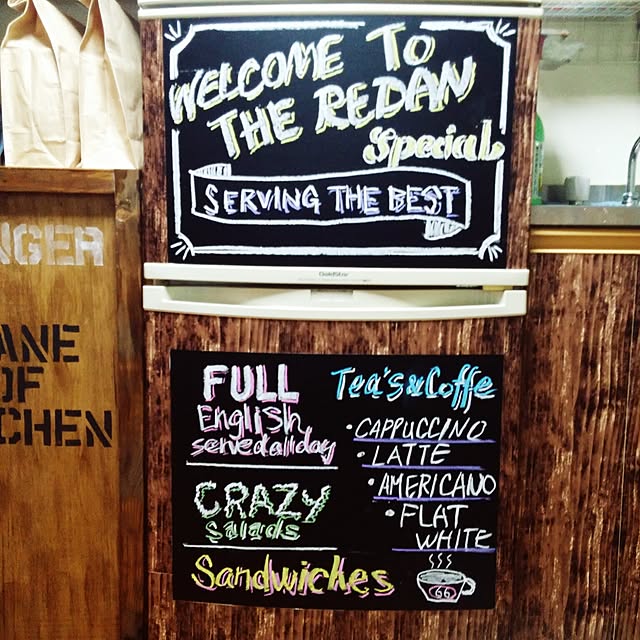 WELCOME TO
THE REDAN
Special
SERVING THE BEST
GoldStar
FULL
English
served all day
CRAZY
Salads
Sandwiches
Tea's & Coffe
• CAPPUCCINO
• LATTE
• AMERICANO
• FLAT
WHITE
66
NGER
ANE
OF
CHEN